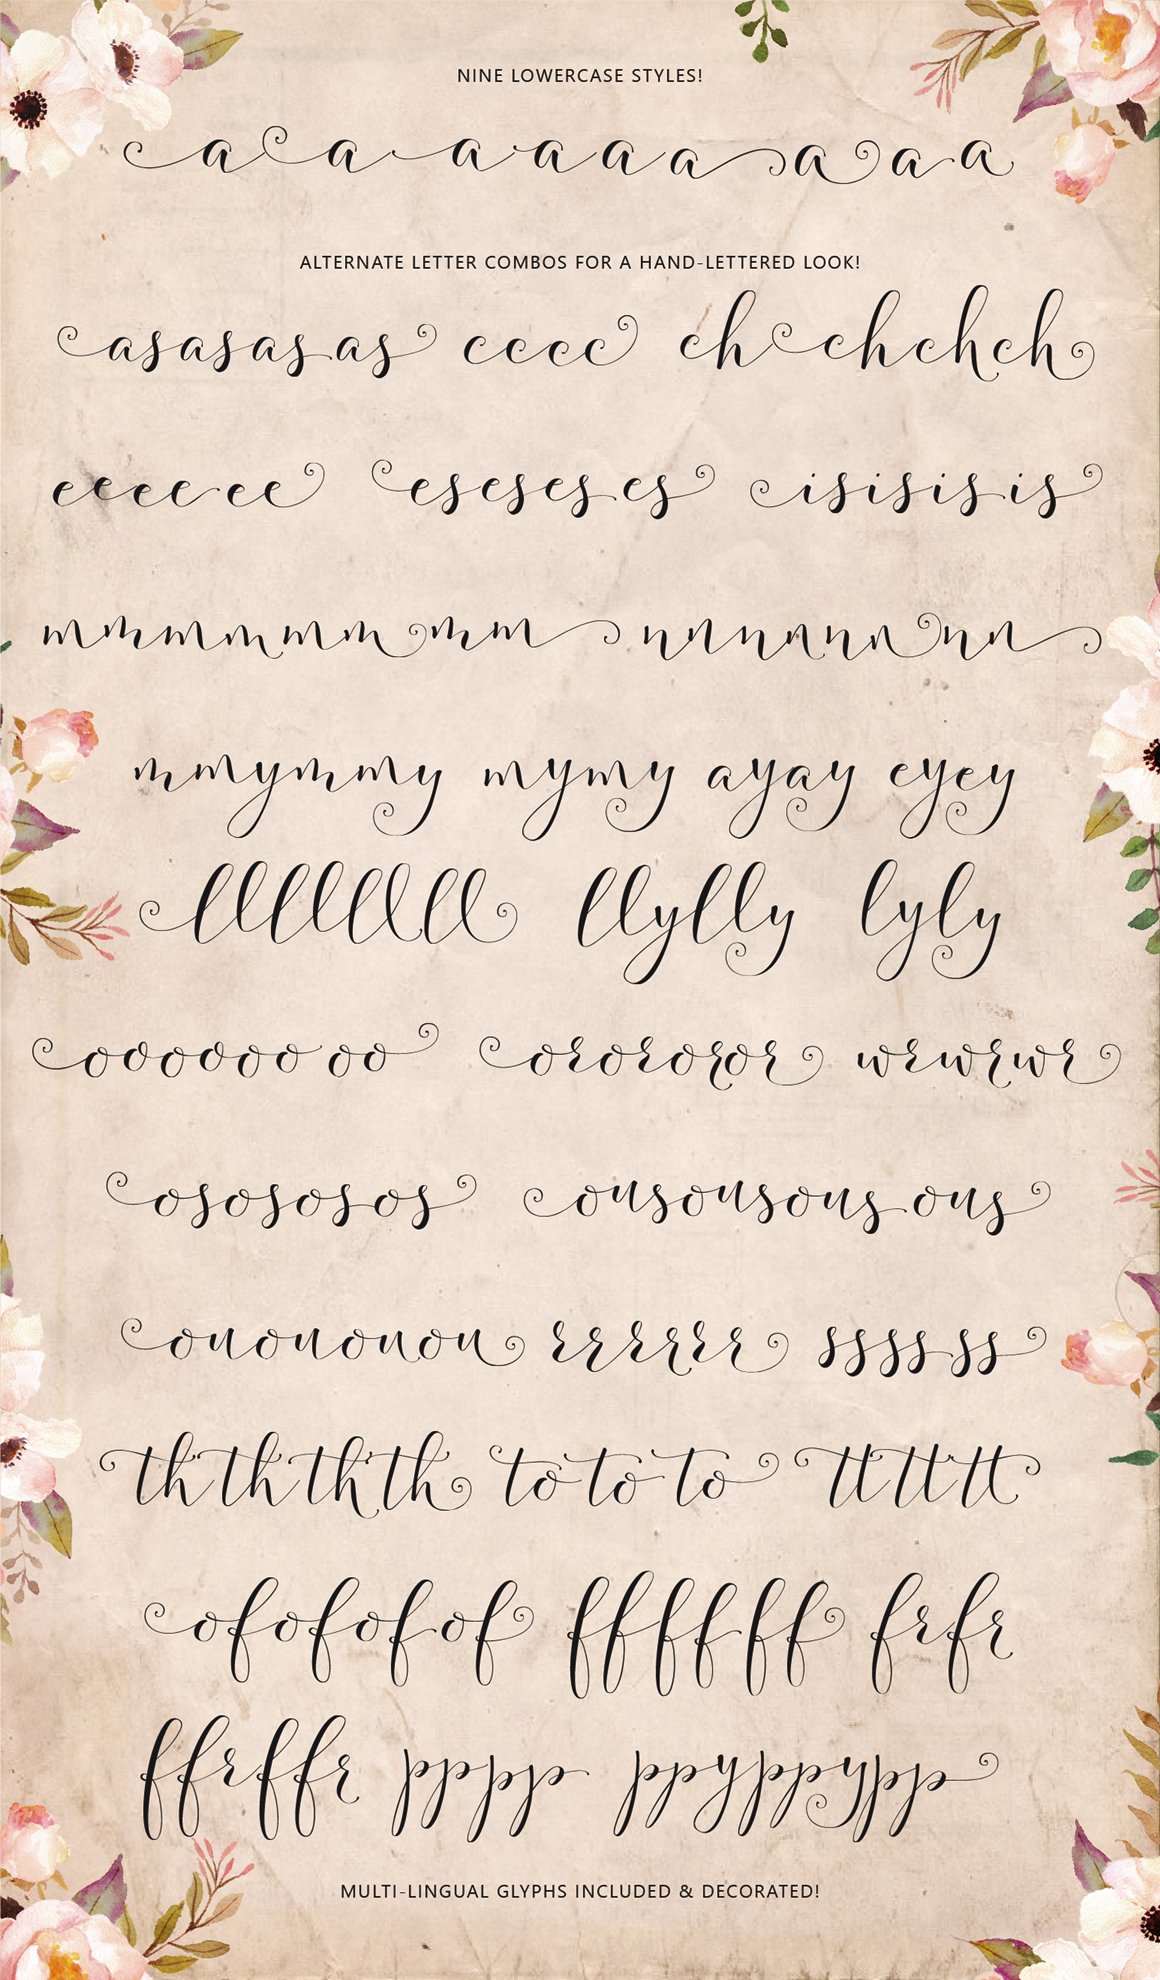 NINE LOWERCASE STYLES!
a a a a a a a a a
ALTERNATE LETTER COMBOS FOR A HAND-LETTERED LOOK!
asasasas cccc chchchch
eeeeee eseseses isisisis
mmmmmmmm nnnnnnnn
mmymmy mymy ayay eyey
llllllll llylly lyly
oooooooo orororor wrwrwr
osososos ousousousous
onononon rrrrrr ssssss
thththth tototo tttttt
ofofofof ffffff frfr
ffrffr pppp ppyppypp
MULTI-LINGUAL GLYPHS INCLUDED & DECORATED!